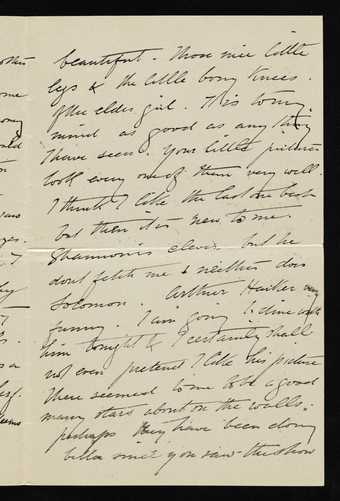 beautiful. Those nice little
legs & the little bony knees.
of the elder girl. It is to my
mind as good as any thing
I have seen. Your little pictures
look every one of them very well.
I think I like the last one best
but then it is new to me.
Shannon is clever but he
dont fetch me & neither does
Solomon. Arthur Hacker very
funny. I am going to dine with
him tonight & I certainly shall
not even pretend I like his picture
There seemed to me to be a good
many stars about on the walls;
perhaps they have been doing
better since you saw the show